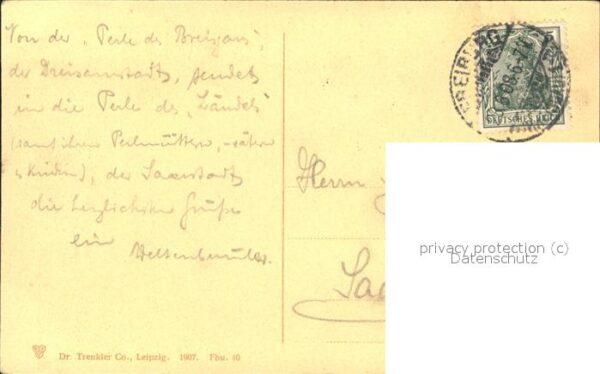 Von der „Perle des Breisgaus“,
der Dreisamstadt, sendet
in die Perle des „Ländels“
(samt ihren Perlmüttern, -vätern
u. Kindern), der Saarstadt
die herzlichsten Grüße
ein Weltenbummler.
FREIBURG
DEUTSCHES REICH
Herrn
Saa
privacy protection (c)
Datenschutz
Dr. Trenkler Co., Leipzig. 1907. Fbu. 40